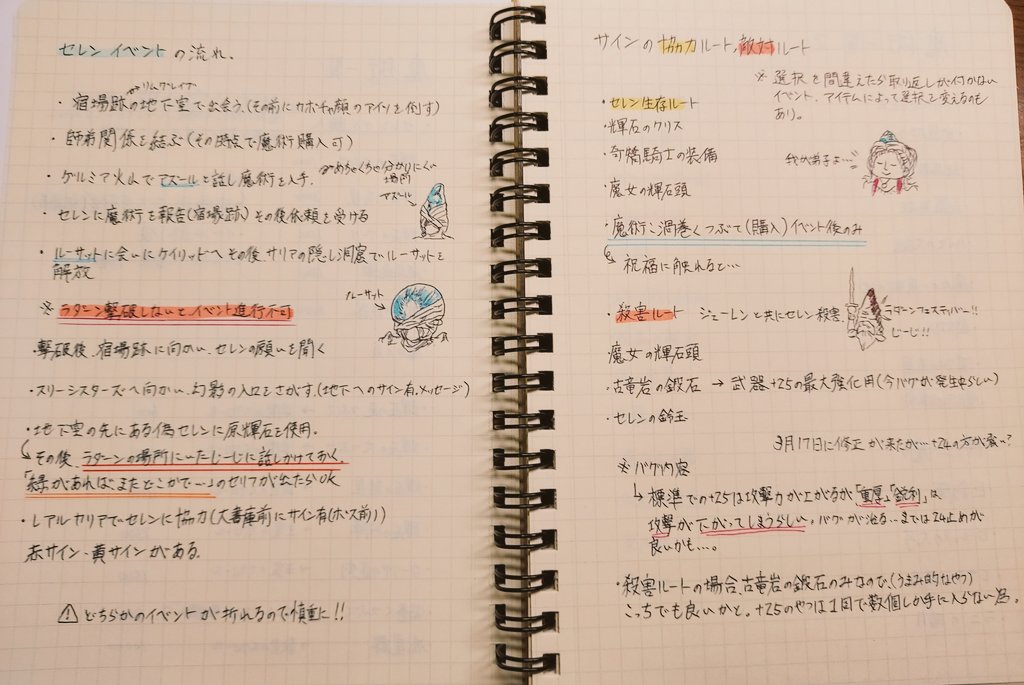 セレンイベントの流れ。
リムグレイブ
・宿場跡の地下室で出会う。(その前にカボチャ顔のアイツを倒す)
・師弟関係を結ぶ(その時点で魔術購入可)
・ゲルミア火山でアズールと話し魔術を入手。
めちゃくちゃ分かりにくい
場所
アズール
・セレンに魔術を報告(宿場跡)その後依頼を受ける
・ルーサットに会いにケイリッドへ その後、サリアの隠し洞窟でルーサットを
解放
ルーサット
※ラダーン撃破しないとイベント進行不可
・撃破後、宿場跡に向かい、セレンの願いを聞く
・スリーシスターズへ向かい、幻影の入口をさがす。(地下へのサイン有、メッセージ)
・地下室の先にある偽セレンに原輝石を使用。
その後、ラダーンの場所にいたじーじに話しかけておく
「縁があればまたどこかで…」のセリフが出たらOK
・レアルカリアでセレンに協力(大書庫前にサイン有(ボス前))
赤サイン・黄サインがある。
⚠どちらかのイベントが折れるので慎重に!!
サインの協力ルート,敵対ルート
※選択を間違えたら取り返しが付かない
イベント、アイテムによって選択を変えるのも
あり。
・セレン生存ルート
・輝石のクリス
・奇矯騎士の装備
・魔女の輝石頭
我が弟子よ…
・魔術:渦巻くつぶて(購入)イベント後のみ
祝福に触れると…
・殺害ルート ジェーレンと共にセレン殺害
ラダーンフェスティバー!!
じーじ!!
・魔女の輝石頭
・古竜岩の鍛石 → 武器+25の最大強化用(今バグが発生中らしい)
・セレンの鈴玉
3月17日に修正が来たが…+24の方が強い?
※バグ内容
↳標準での+25は攻撃力が上がるが「重厚」「鋭利」は
攻撃が下がってしまうらしい。バグが治る…までは24止めが
良いかも…。
・殺害ルートの場合、古竜岩の鍛石のみなので、(うまみ的なやつ)
こっちでも良いかと。+25のやつは1回で数個しか手に入らない為。